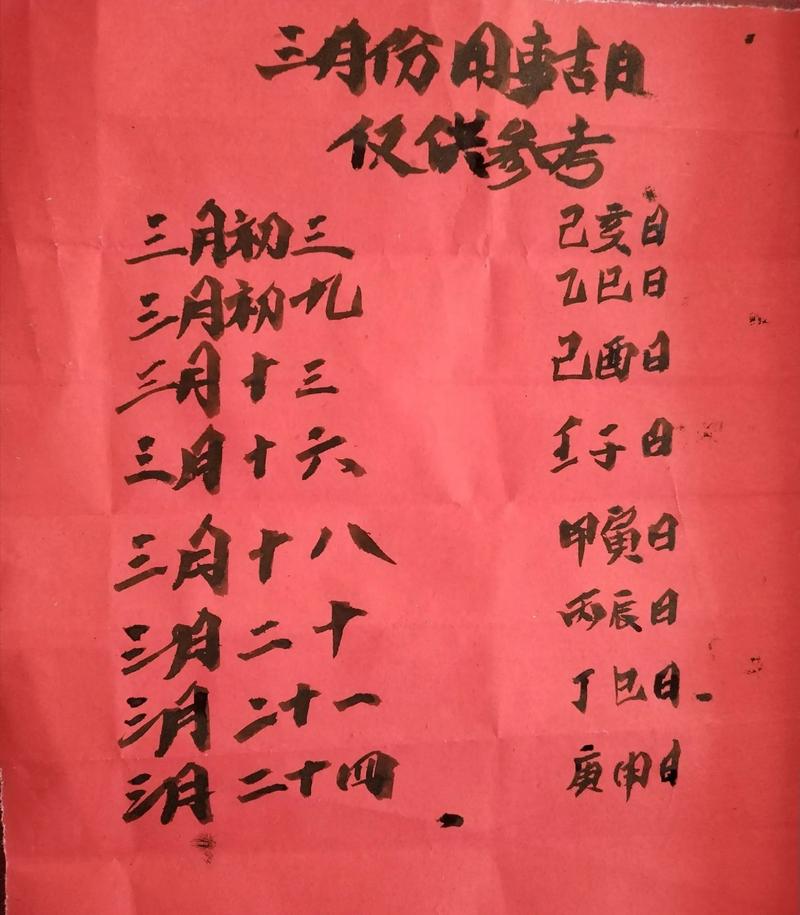 三月份用事吉日
仅供参考
三月初三 己亥日
三月初九 乙巳日
三月十三 己酉日
三月十六 壬子日
三月十八 甲寅日
三月二十 丙辰日
三月二十一 丁巳日
三月二十四 庚申日